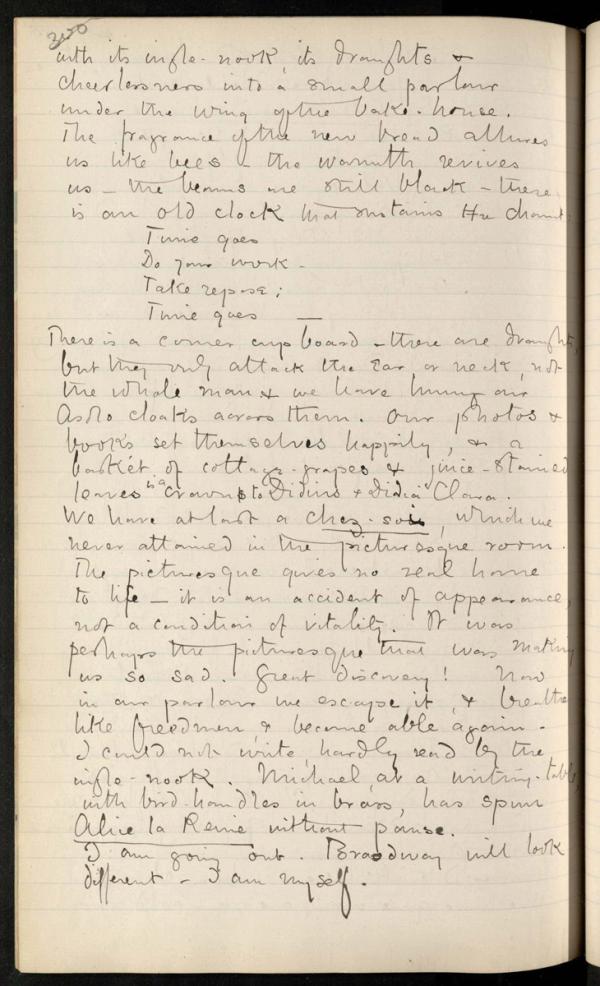 300
with its ingle-nook, its draughts &
cheerlessness into a small parlour
under the wing of the bake-house.
The fragrance of the new bread allures
us like bees – the warmth revives
us – the beams are still black – there
is an old clock that sustains the chant
Time goes
Do your work –
Take repose;
Time goes —
There is a corner cupboard – there are draughts,
but they only attack the ear or neck, not
the whole man & we have hung our
Asolo cloaks across them. Our photos &
books set themselves happily, & a
basket of cottage-grapes & juice-stained
leaves is a crown to Didino & Didia Clara.
We have at last a chez-soi, which we
never attained in the picturesque room.
The picturesque gives no real home
to life – it is an accident of appearance,
not a condition of vitality. It was
perhaps the picturesque that was making
us so sad. Great discovery! Now
in our parlour we escape it, & breathe
like freedmen, & become able again.
I could not write, hardly read by the
ingle-nook. Michael, at a writing-table,
with bird-handles in brass, has spun
Alice la Reine without pause.
I am going out. Broadway will look
different – I am myself.